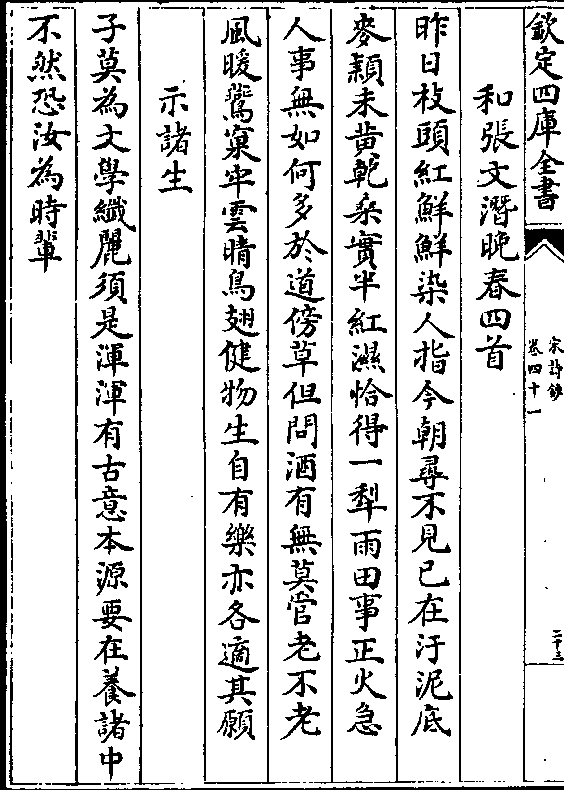 欽定四庫全書
宋詩鈔
卷四十一
二十三
和張文潛晚春四首
昨日枝頭紅鮮鮮染人指今朝尋不見已在汙泥底
麥穎未黄乾桒實半紅濕恰得一犁雨田事正火急
人事無如何多於道傍草但問酒有無莫管老不老
風暖鷰窠牢雲晴鳥翅健物生自有樂亦各適其願
示諸生
子莫為文學纖麗須是渾渾有古意本源要在養諸中
不然恐汝為時輩